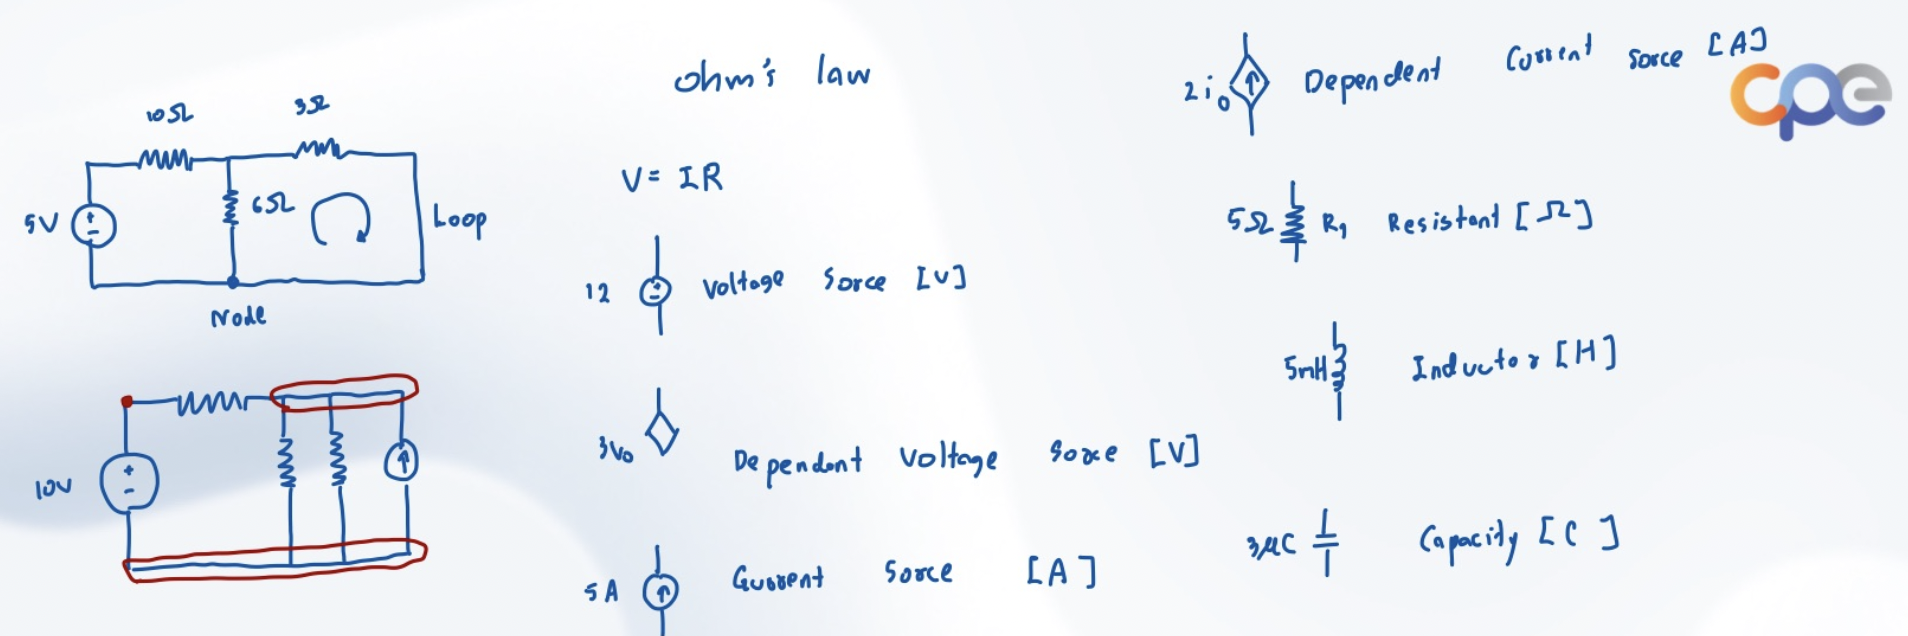 10Ω
3Ω
5V
6Ω
Loop
Node
10V
ohm's law
V = IR
12 Voltage Sorce [V]
3V₀ Dependant Voltage Sorce [V]
5A Current Sorce [A]
2i₀ Dependent Current Sorce [A]
cpe
5Ω R₁ Resistant [Ω]
5mH Inductor [H]
3μC Capacity [C]